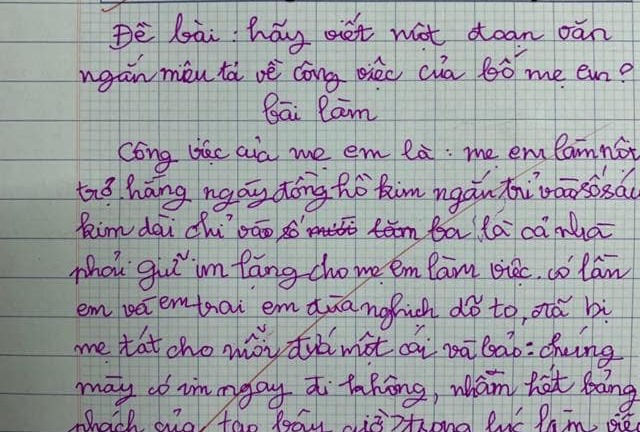 Đề bài: hãy viết một đoạn văn
ngắn miêu tả về công việc của bố mẹ em?
bài làm
Công việc của mẹ em là: mẹ em làm nội
trợ. hàng ngày đồng hồ kim ngắn trỉ vào số sáu
kim dài chỉ vào số mười lăm ba là cả nhà
phải giữ im lặng cho mẹ em làm việc. có lần
em và em trai em đùa nghịch dỗ to, đã bị
mẹ tát cho mỗi đứa một cái và bảo: chúng
mày có im ngay đi không, nhầm hết bảng
phách của tao bây giờ? trong lúc làm việc